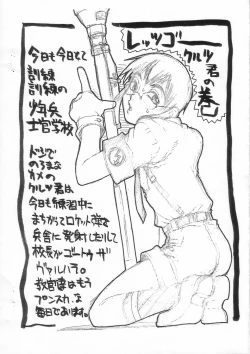 レッツゴー
クルツ
君の
巻
今日も今日とて
訓練
訓練の
少年兵
士官学校
ドジで
のろまな
カメの
クルツ君は
今日も練習中に
まちがってロケット弾を
兵舎に発射したりして
校長がゴートゥザ
ヴァルハラ。
教官達はもう
プンスカ。な
毎日であります。